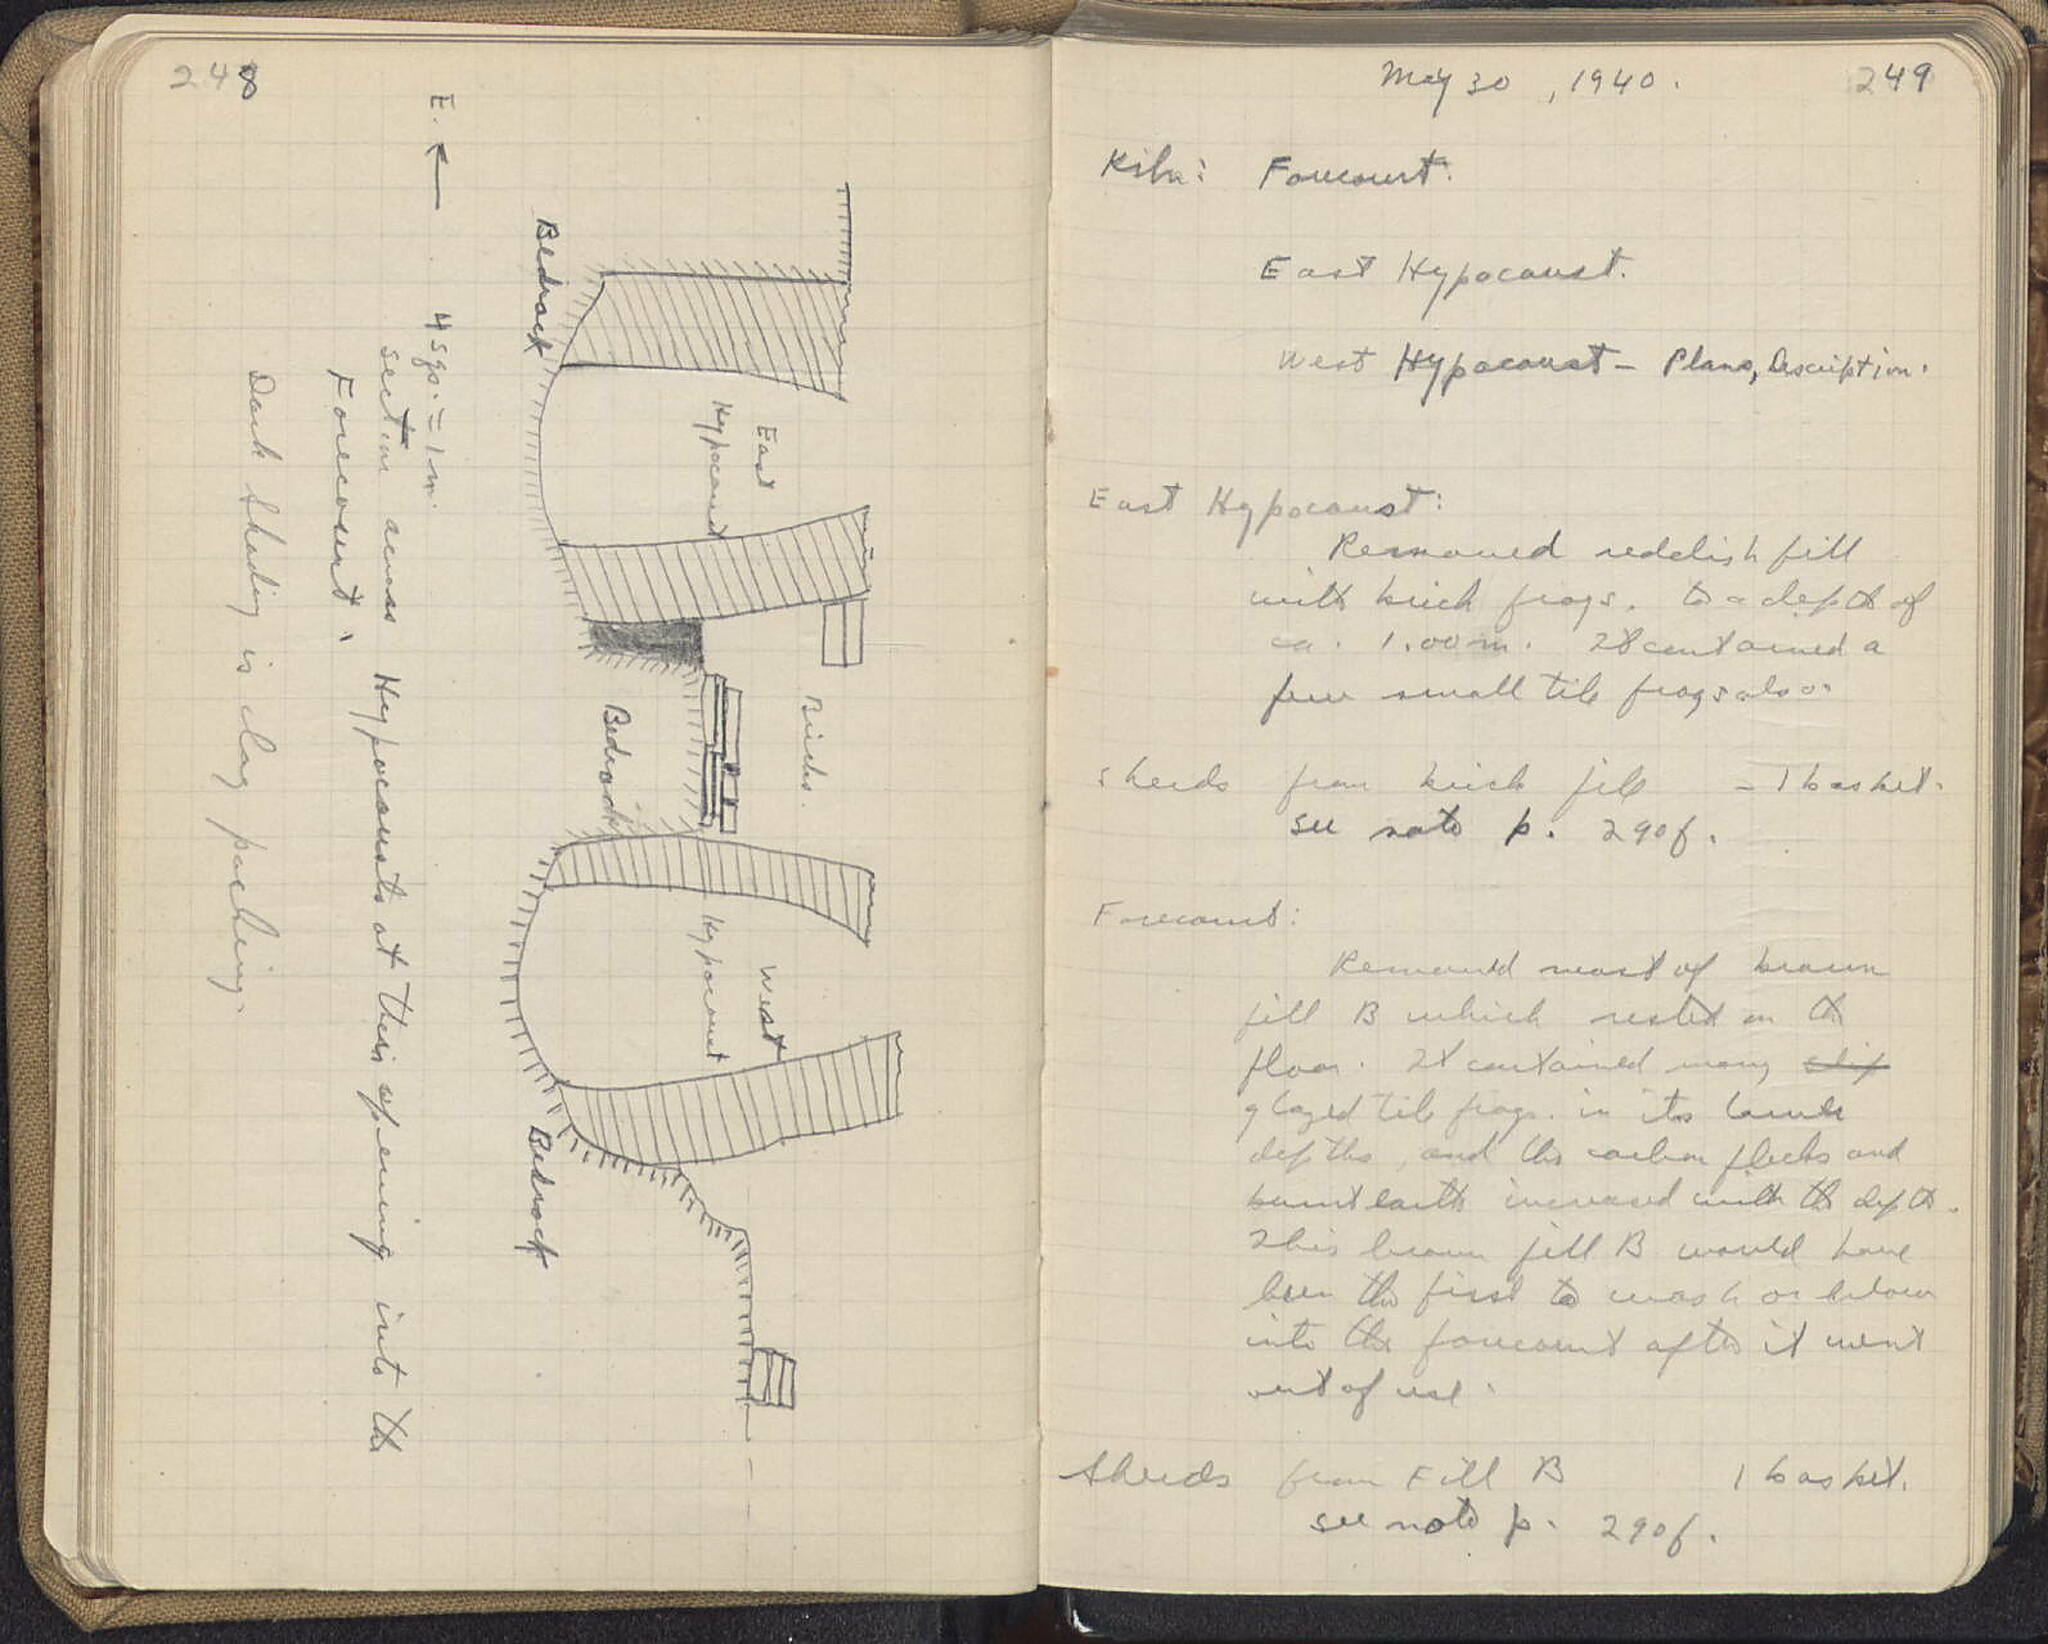 248
E. ←
4 sqs. = 1 m.
section across Hypocausts at their opening into the
Forecourt.
Dark shading is clay packing.
Bedrock
East
Hypocaust
Bedrock
Bricks.
West
Hypocaust
Bedrock
May 30, 1940.
249
Kiln: Forecourt.
East Hypocaust.
West Hypocaust — Plans, Description.
East Hypocaust:
Removed reddish fill
with brick frags. to a depth of
ca. 1.00 m. It contained a
few small tile frags also.
Sherds from brick fill — 1 basket.
see note p. 290f.
Forecourt:
Removed most of brown
fill B which rested on the
floor. It contained many slip
glazed tile frags. in its lower
depths, and the carbon flecks and
burnt earth increased with the depth.
This brown fill B would have
been the first to wash or blow
into the forecourt after it went
out of use.
Sherds from Fill B 1 basket.
see note p. 290f.